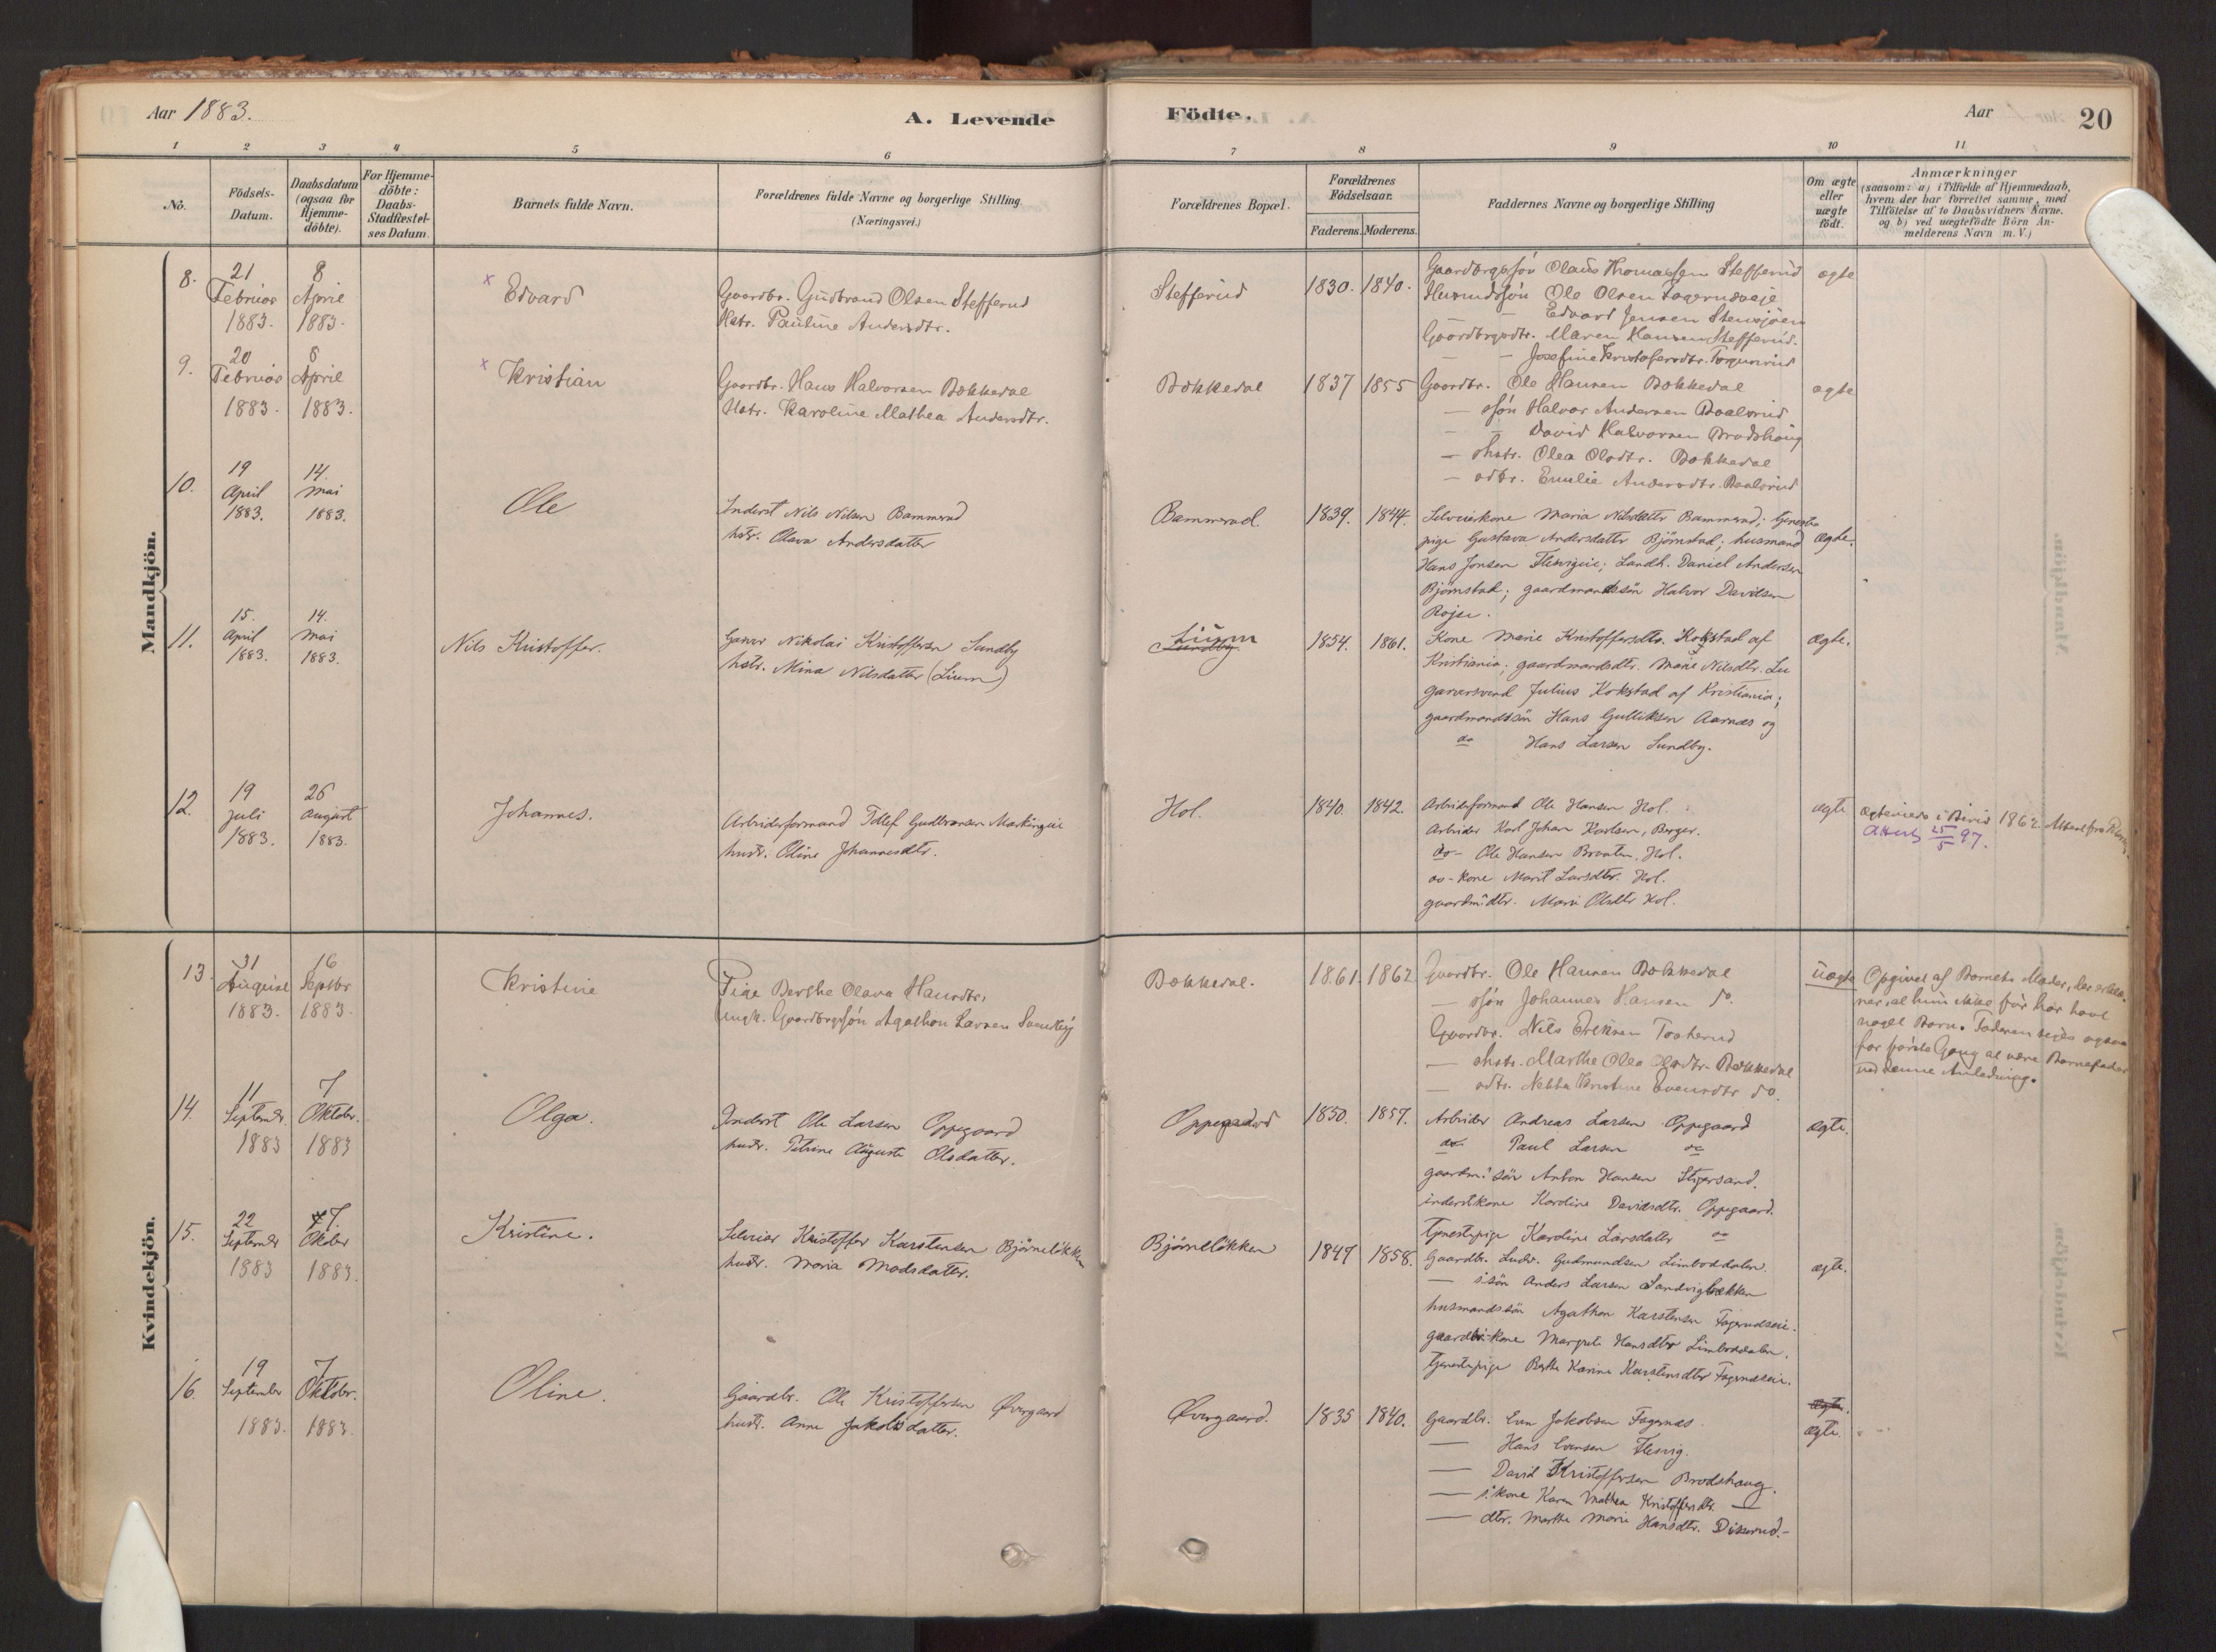 Aar 1883.
A. Levende
Födte.
Aar
20
1
2
3
4
5
6
7
8
9
10
11
No.
Födsels-
Datum.
Daabsdatum
(ogsaa for
Hjemme-
döbte).
For Hjemme-
döbte:
Daabs-
Stadfæstel-
ses Datum.
Barnets fulde Navn.
Forældrenes fulde Navne og borgerlige Stilling.
(Næringsvei.)
Forældrenes Bopæl.
Forældrenes
Födselsaar.
Faderens.
Moderens.
Faddernes Navne og borgerlige Stilling
Om ægte
eller
uægte
födt.
Anmærkninger
(saasom: a) i Tilfælde af Hjemmedaab,
hvem der har forrettet samme, med
Tilföielse af to Daabsvidners Navne.
og b) ved uægtefödte Börn An-
melderens Navn m. V.)
Mandkjön.
8.
21
Februar
1883.
8
April
1883.
x Edvard
Gaardbr. Gudbrand Olsen Stefferud
Hstr. Pauline Andersdtr.
Stefferud
1830.
1840.
Gaardbrgssön Olaus Thomassen Stefferud
Husmdssön Ole Olsen Fagernsveje
Edvard Jensen Stensjöen
Gaardbrgsdtr. Maren Hansen Stefferud.
— — Josefine Kristofersdtr.
ægte
9.
20
Februar
1883.
8
April
1883.
x Kristian
Gaardbr. Hans Halvorsen Bækkedal
Hstr. Karoline Mathea Andersdtr.
Bækkedal
1837
1855
Gaardbr. Ole Hansen Bækkedal
— ssön Halvor Andersen Baalsrud
— — David Halvorsen Brodshaug
— shstr. Olea Olsdtr. Bækkedal
— sdtr. Emilie Andersdtr. Baalsrud
ægte
10.
19
April
1883.
14.
Mai
1883.
Ole
Inderst Nils Nilsen Bammerud
hstr. Olava Andersdatter
Bammerud.
1839.
1844.
Selveierkone Maria Nilsdatter Bammerud; tjeneste
pige Gustava Andersdatter Bjørnstad; husmand
Hans Jonsen Flesvigeie; Landh. Daniel Andersen
Bjørnstad; gaardmandssön Halvor Davidsen
Rojse.
Ægte.
11.
15.
April
1883.
14.
Mai
1883.
Nils Kristoffer.
Garver Nikolai Kristoffersen Sundby
hstr. Mina Nilsdatter (Lium)
Lium
Sundby.
1854.
1861.
Kone Marie Kristoffersdtr. Kokstad af
Kristiania; gaardmandsdtr. Marie Nilsdtr. Lu
garversvend Julius Kokstad af Kristiania;
gaardmandssön Hans Gulliksen Aarnæs og
do Hans Larsen Sundby.
Ægte.
12.
19
Juli
1883.
26
August
1883.
Johannes.
Arbeiderformand Tollef Gudbransen Markingeie
hustr. Oline Johannesdtr.
Hol.
1840.
1842.
Arbeiderformand Ole Hansen Hol.
Arbeider Karl Johan Karlsen, Berger.
do – Ole Hansen Braaten, Hol.
do – kone Marit Larsdtr. Hol.
gaardm.dtr. Mari Olsdtr. Hol.
ægte
Ægteviede i Biri 1862.
Attest 25/5 97.
Kvindekjön.
13.
31
August
1883.
16
Septbr
1883.
Kristine
Pige Berthe Olava Hansdtr.
Ungk. Gaardbrgssön Agathon Larsen Sandvig
Bækkedal.
1861
1862
Gaardbr. Ole Hansen Bækkedal
— ssön Johannes Hansen do.
Gaardbr. Nils Eriksen Tosterud
— shstr. Marthe Olea Olsdtr. Bækkedal
— sdtr. Netta Kristine Evensdtr do.
uægte
Opgivet af Barnets Moder, der erklæ-
rer, at hun ikke för har havt
noget Barn. Faderen siges ogsaa
for förste Gang at være Barnefader
ved denne Anledning.
14.
11
Septembr.
1883
7
Oktobr.
1883
Olga.
Inderst Ole Larsen Oppegaard
hustr. Petrine Auguste Olsdatter.
Oppegaard
1850.
1857.
Arbeider Andreas Larsen Oppegaard
do Paul Larsen do
gaardm.s sön Anton Hansen Stigersand.
inderstkone Karoline Davidsdtr. Oppegaard.
tjenestepige Karoline Larsdatter do
ægte.
15.
22
Septembr
1883
7.
Oktober
1883.
Kristine.
Selveier Kristoffer Karstensen Bjørneløkken
hustr. Maria Madsdatter.
Bjørneløkken
1847
1858.
Gaardbr. Ludv. Gudmundsen Limboddalen.
— s. sön Anders Larsen Sandvigbækken
husmandssön Agathon Karstensen Fagerndseie.
gaardbr.-kone Margrete Hansdtr Limboddalen.
tjenestepige Berthe Karine Karstensdtr Fagerndseie.
ægte.
16.
19
September
1883.
7
Oktobr.
1883.
Oline.
Gaardbr. Ole Kristoffersen Øvergaard
hustr. Anne Jakobsdatter.
Øvergaard.
1835
1840.
Gaardbr. Even Jakobsen Fagernæs.
— Hans Evensen Flesvig.
— David Kristoffersen Brodshaug.
— s. kone Karen Mathea Kristoffersdtr. —
— dtr. Marthe Marie Hansdtr. Diserud.
ægte.
ægte.